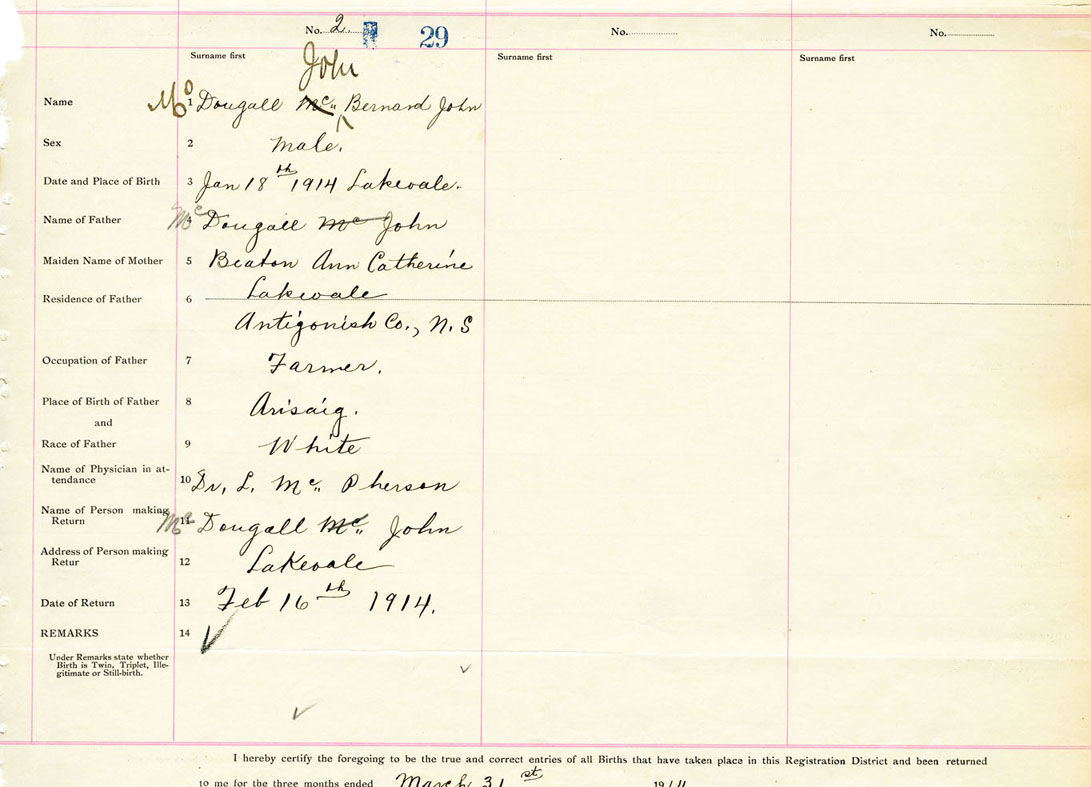 No. 2. 29
No.
No.
Surname first
Surname first
Surname first
John
Name Mc 1 Dougall Mc Bernard John
Sex 2 Male.
Date and Place of Birth 3 Jan 18th 1914 Lakevale.
Name of Father Mc 4 Dougall Mc John
Maiden Name of Mother 5 Beaton Ann Catherine
Residence of Father 6 Lakevale
Antigonish Co., N. S
Occupation of Father 7 Farmer.
Place of Birth of Father 8 Arisaig.
and
Race of Father 9 White
Name of Physician in at-
tendance 10 Dr, L. Mc Pherson
Name of Person making
Return Mc 11 Dougall Mc John
Address of Person making
Retur 12 Lakevale
Date of Return 13 Feb 16th 1914.
REMARKS 14
Under Remarks state whether
Birth is Twin, Triplet, Ille-
gitimate or Still-birth.
I hereby certify the foregoing to be the true and correct entries of all Births that have taken place in this Registration District and been returned
to me for the three months ended March 31st 1914